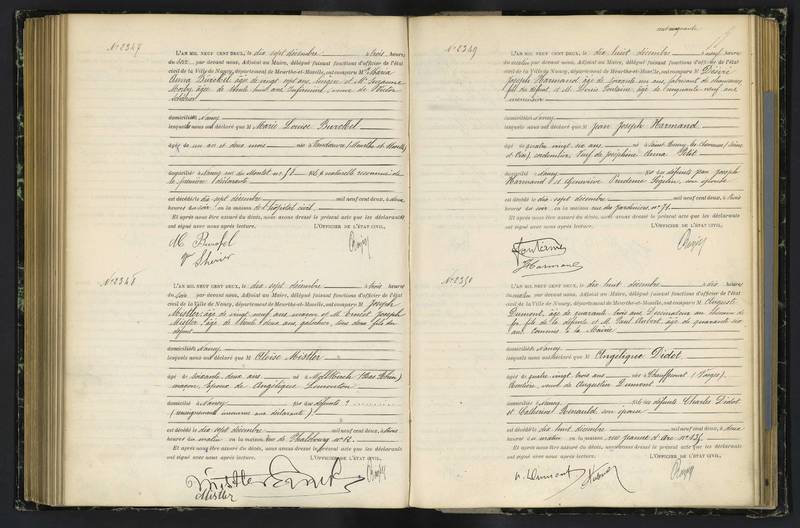 N° 2347
L'AN MIL NEUF CENT DEUX, le dix sept décembre à trois heures
du soir par devant nous, Adjoint au Maire, délégué faisant fonctions d'officier de l'état
civil de la Ville de Nancy, département de Meurthe-et-Moselle, ont comparu M Maria
Anna Burckel, âgée de vingt sept ans, lingère et M
âgée de trente huit ans, infirmière, veuve de Victor
domiciliés à Nancy
lesquels nous ont déclaré que M Marie Louise Burckel
âgée de un an et deux mois née à Vandœuvre (Meurthe et Moselle)
domiciliée à Nancy rue du Montet n°
la première déclarante
est décédée dix sept décembre mil neuf cent deux, à deux
heures du soir en la maison de l'hôpital civil
Et après nous être assuré du décès, nous avons dressé le présent acte que les déclarants
ont signé avec nous après lecture. L'OFFICIER DE L'ÉTAT CIVIL,
N° 2348
L'AN MIL NEUF CENT DEUX, le dix sept décembre à trois heures
du soir par devant nous, Adjoint au Maire, délégué faisant fonctions d'officier de l'état
civil de la Ville de Nancy, département de Meurthe-et-Moselle, ont comparu M Joseph
Mistler, âgé de vingt neuf ans, maçon et M Ernest Joseph
Mistler, âgé de trente deux ans, galochier, tous deux fils du
défunt
domiciliés à Nancy
lesquels nous ont déclaré que M Aloïse Mistler
âgé de soixante deux ans né à (Bas Rhin)
maçon, époux de Angélique Lemonton
domicilié à Nancy fils des défunts
(renseignements inconnus aux déclarants)
est décédé dix sept décembre mil neuf cent deux, à trois
heures du matin en la maison rue de Phalsbourg n° 12
Et après nous être assuré du décès, nous avons dressé le présent acte que les déclarants
ont signé avec nous après lecture. L'OFFICIER DE L'ÉTAT CIVIL,
Mistler
Mistler
N° 2349
L'AN MIL NEUF CENT DEUX, le dix huit décembre à neuf heures
du matin par devant nous, Adjoint au Maire, délégué faisant fonctions d'officier de l'état
civil de la Ville de Nancy, département de Meurthe-et-Moselle, ont comparu M Désiré
Joseph Harmand, âgé de soixante un ans, fabricant de chaussures
fils du défunt, et M Denis Fontaine, âgé de cinquante neuf ans
menuisier
domiciliés à Nancy
lesquels nous ont déclaré que M Jean Joseph Harmand
âgé de quatre vingt six ans né à
cordonnier, veuf de Joséphine Anna Petit
domicilié à Nancy fils des défunts Jean Joseph
Harmand et Geneviève Prudence son épouse
est décédé dix sept décembre mil neuf cent deux, à trois
heures du soir en la maison rue des Jardiniers n° 71
Et après nous être assuré du décès, nous avons dressé le présent acte que les déclarants
ont signé avec nous après lecture. L'OFFICIER DE L'ÉTAT CIVIL,
Harmand
N° 2350
L'AN MIL NEUF CENT DEUX, le dix huit décembre à dix heures
du matin par devant nous, Adjoint au Maire, délégué faisant fonctions d'officier de l'état
civil de la Ville de Nancy, département de Meurthe-et-Moselle, ont comparu M Auguste
Dumont, âgé de quarante trois ans, dessinateur au chemin de
fer, fils de la défunte et M Paul Aubert, âgé de quarante six
ans, commis à la Mairie
domiciliés à Nancy
lesquels nous ont déclaré que M Angélique Didot
âgée de quatre vingt trois ans née à (Vosges)
rentière, veuve de Augustin Dumont
domiciliée à Nancy fille des défunts Charles Didot
et Catherine son épouse
est décédée dix huit décembre mil neuf cent deux, à deux
heures du matin en la maison rue Jeanne d'Arc n°
Et après nous être assuré du décès, nous avons dressé le présent acte que les déclarants
ont signé avec nous après lecture. L'OFFICIER DE L'ÉTAT CIVIL,
Dumont